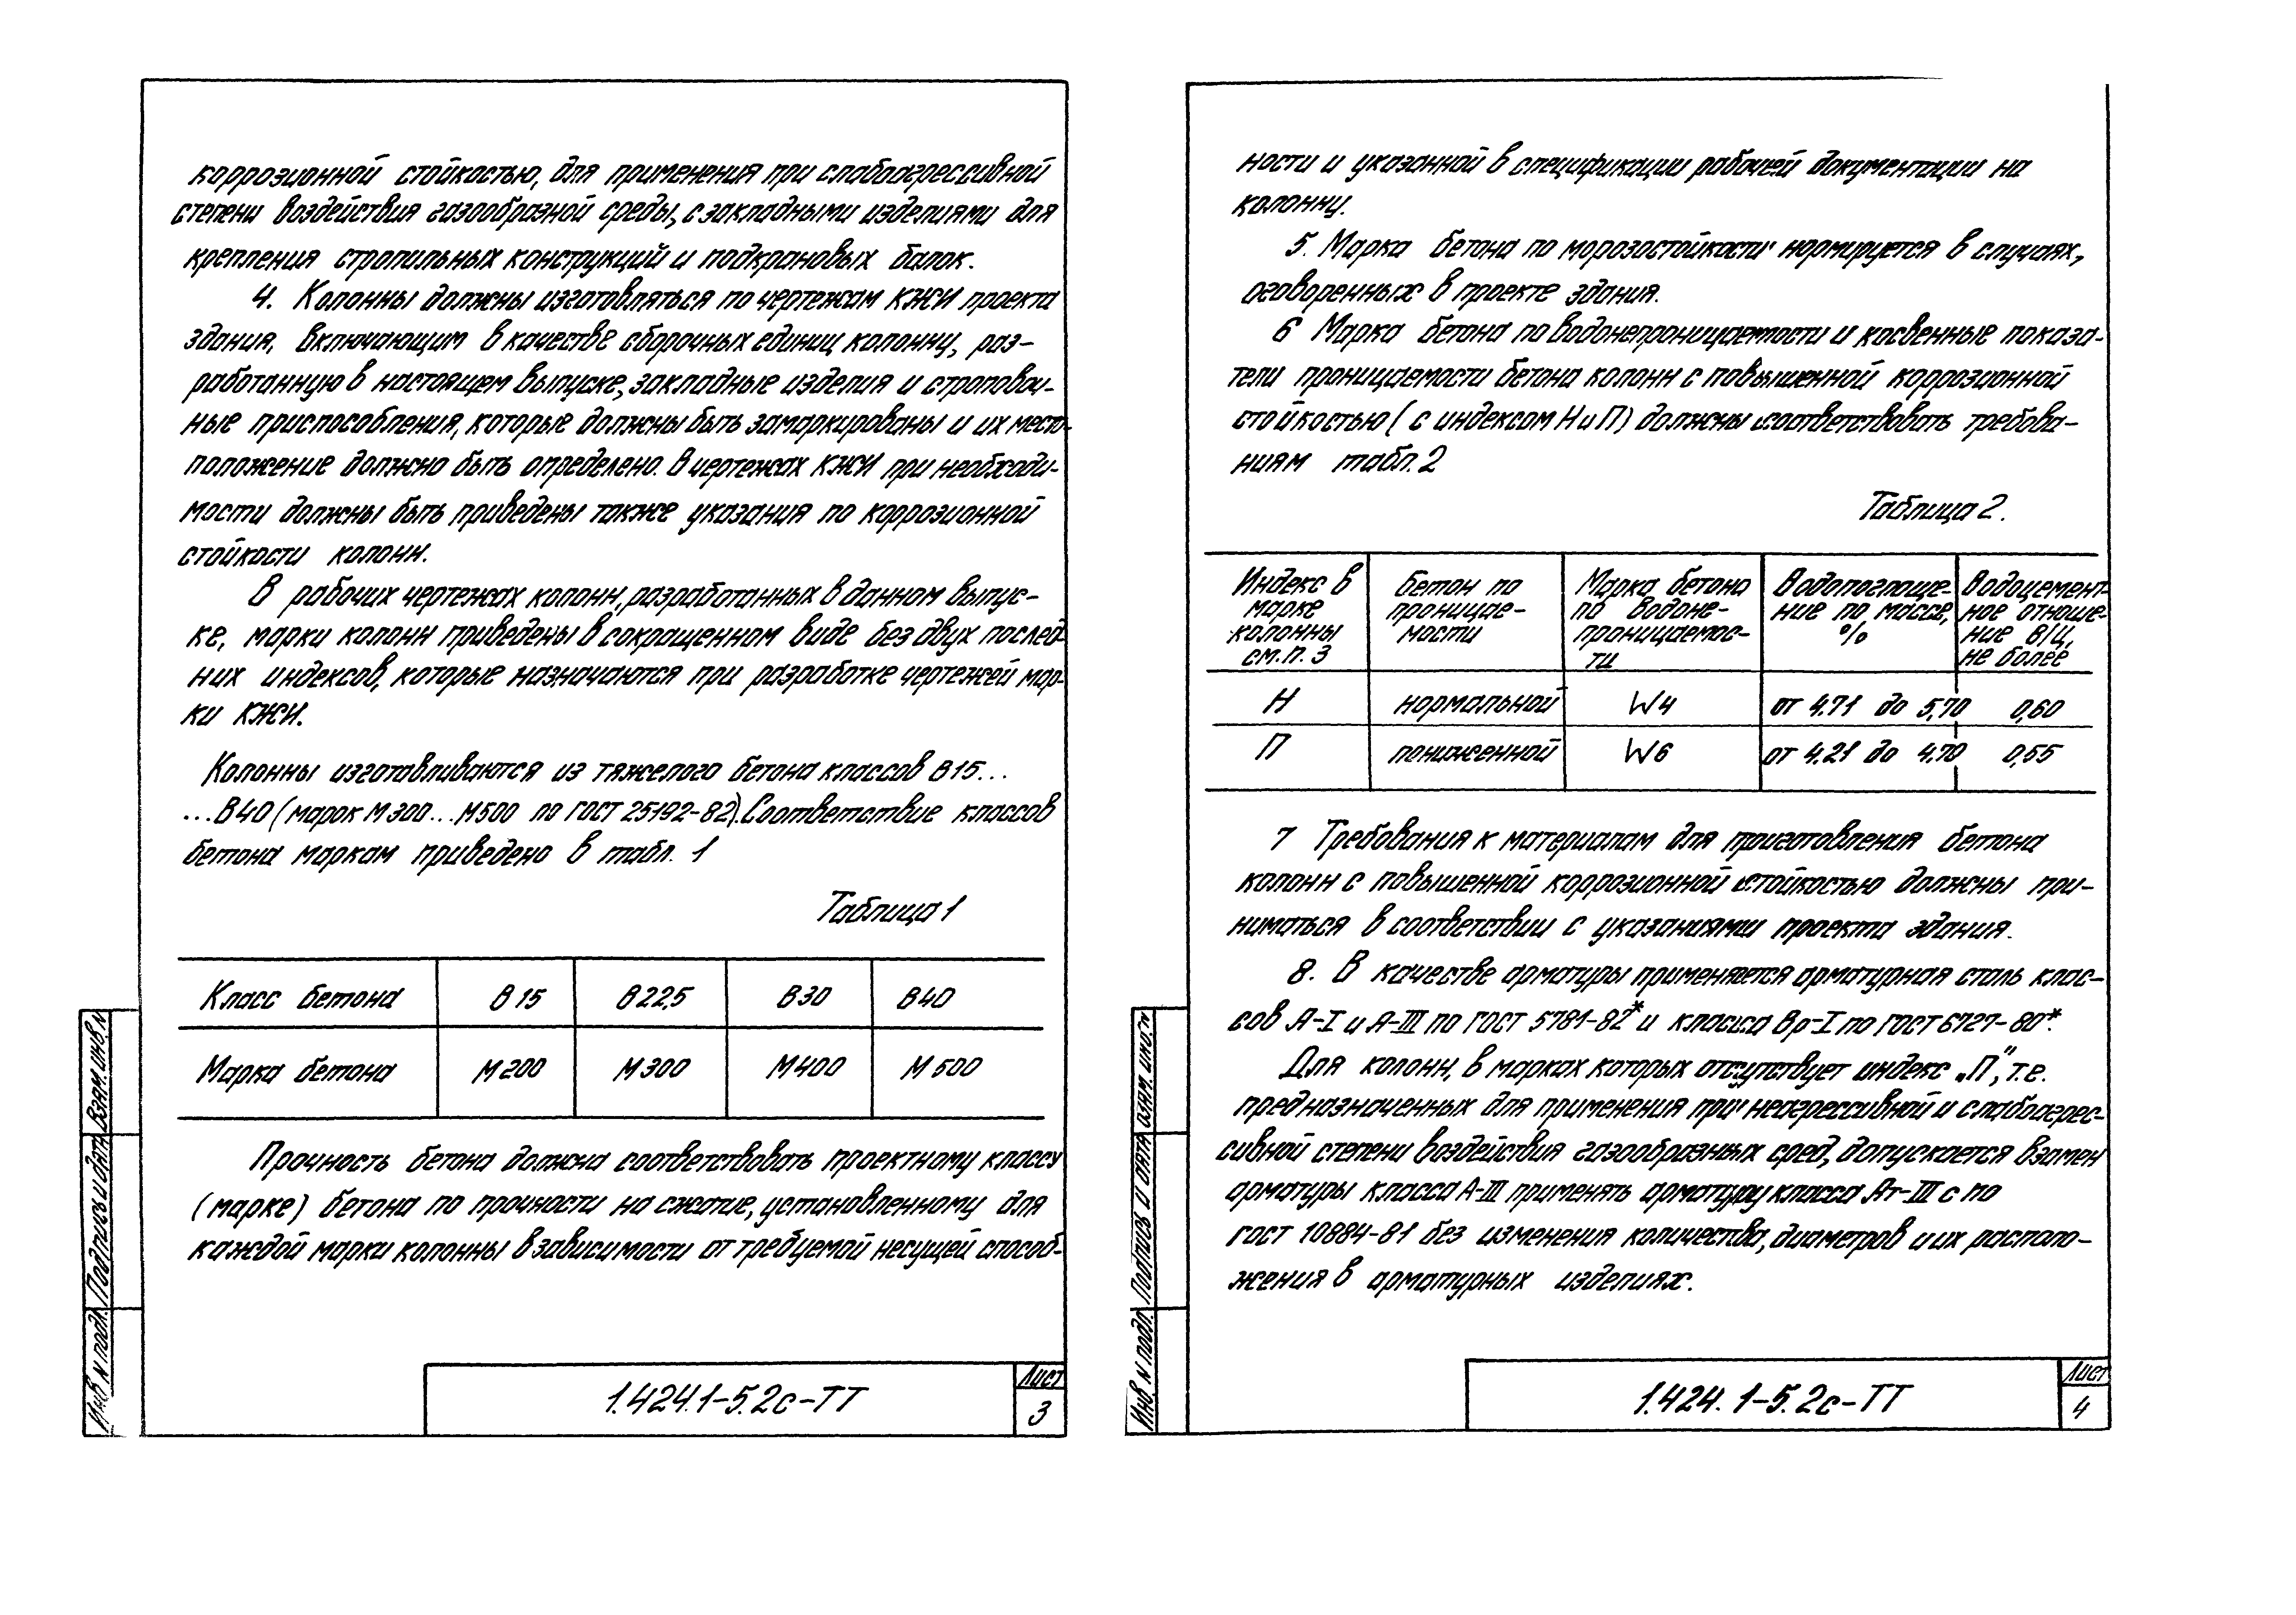 коррозионной стойкостью, для применения при слабоагрессивной
степени воздействия газообразной среды, с закладными изделиями для
крепления стропильных конструкций и подкрановых балок.
4. Колонны должны изготовляться по чертежам КЖИ проекта
здания, включающим в качестве сборочных единиц колонну, раз-
работанную в настоящем выпуске, закладные изделия и строповоч-
ные приспособления, которые должны быть замаркированы и их место-
положение должно быть определено. В чертежах КЖИ при необходи-
мости должны быть приведены также указания по коррозионной
стойкости колонн.
В рабочих чертежах колонн, разработанных в данном выпус-
ке, марки колонн приведены в сокращенном виде без двух послед-
них индексов, которые назначаются при разработке чертежей мар-
ки КЖИ.
Колонны изготавливаются из тяжелого бетона классов В15...
...В40 (марок М300...М500 по ГОСТ 25192-82). Соответствие классов
бетона маркам приведено в табл. 1
Таблица 1
Класс бетона В15 В22,5 В30 В40
Марка бетона М200 М300 М400 М500
Прочность бетона должна соответствовать проектному классу
(марке) бетона по прочности на сжатие, установленному для
каждой марки колонны в зависимости от требуемой несущей способ-
Инв N подл. Подпись и дата Взам. инв. N
1.424.1-5.2с-ТТ
Лист
3
ности и указанной в спецификации рабочей документации на
колонну.
5. Марка бетона по морозостойкости нормируется в случаях,
оговоренных в проекте здания.
6 Марка бетона по водонепроницаемости и косвенные показа-
тели проницаемости бетона колонн с повышенной коррозионной
стойкостью (с индексом Н и П) должны соответствовать требова-
ниям табл. 2
Таблица 2.
Индекс в марке колонны см. п. 3 | Бетон по проницае-мости | Марка бетона по водоне-проницаемос-ти | Водопоглоще-ние по массе, % | Водоцемент-ное отноше-ние В/Ц, не более
Н нормальной W4 от 4.71 до 5,70 0,60
П пониженной W6 от 4.21 до 4.70 0,55
7 Требования к материалам для приготовления бетона
колонн с повышенной коррозионной стойкостью должны при-
ниматься в соответствии с указаниями проекта здания.
8. В качестве арматуры применяется арматурная сталь клас-
сов А-I и А-III по ГОСТ 5781-82* и класса Вр-I по ГОСТ 6727-80*.
Для колонн, в марках которых отсутствует индекс „П", т.е.
предназначенных для применения при неагрессивной и слабоагрес-
сивной степени воздействия газообразных сред, допускается взамен
арматуры класса А-III применять арматуру класса Ат-III с по
ГОСТ 10884-81 без изменения количества, диаметров и их располо-
жения в арматурных изделиях.
Инв N подл. Подпись и дата Взам. инв. N
1.424.1-5.2с-ТТ
Лист
4